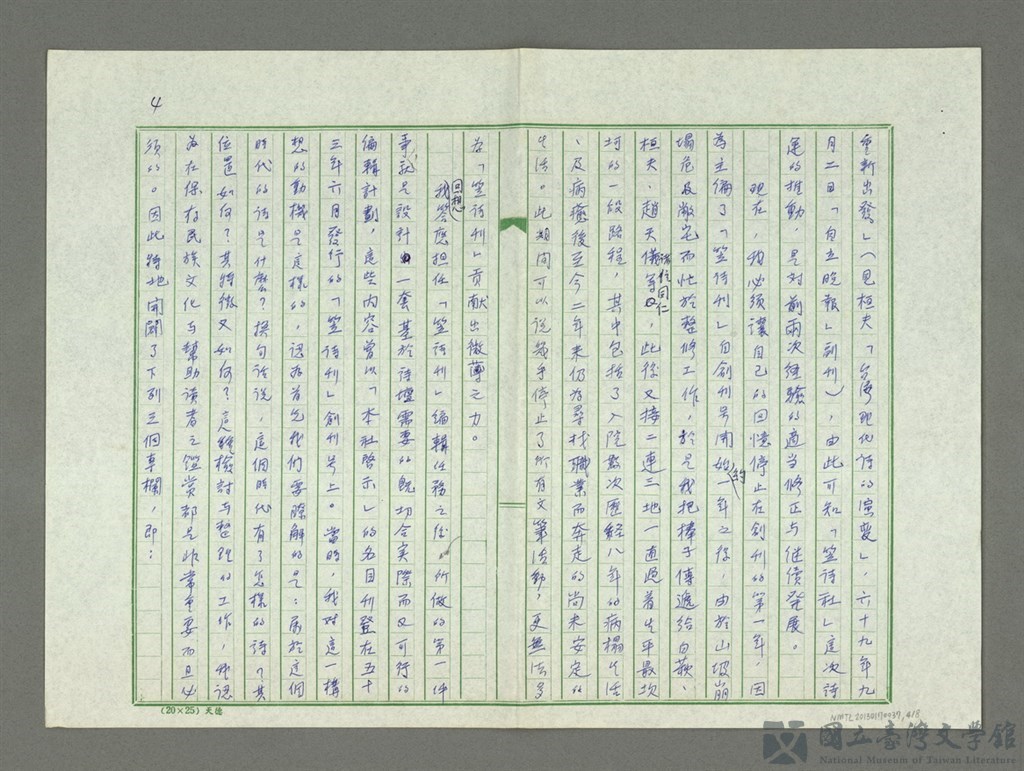 4
重新出發」(見桓夫「台灣現代詩的演變」,六十九年九
月二日「自立晚報」副刊),由此可知「笠詩社」這次詩
選的推動,是对前兩次經驗的適当修正与继续發展。
現在,我必须讓自己的回憶停止在創刊的第一年,因
為主编了「笠詩刊」自創刊号開始約一年之後,由於山坡崩
塌危及敝宅而忙於整修工作,於是我把棒子傳遞給白萩、
桓夫、趙天儀等諸位同仁,此後又接二連三地一直過着生平最坎
坷的一段路程,其中包括了入院數次歷經八年的病榻生活
、及病癒後至今二年来仍为尋找職業而奔走的尚未安定的
生活。此期间可以说幾乎停止了所有文筆活動,更無法多
为「笠詩刊」貢献出微薄之力。
回想我答應担任「笠詩刊」编輯任務之後所做的第一件
事,就是設計一套基於詩壇需要的既切合实際而又可行的
编輯計劃,這些内容曾以「本社啓示」的名目刊登在五十
三年六月發行的「笠詩刊」創刊号上。當時,我对這一構
想的動機是這樣的,認为首先我們要瞭解的是:屬於這個
時代的詩是什麼?换句话说,這個時代有了怎樣的詩?其
位置如何?其特徵又如何?這種检討与整理的工作,我認
为在保存民族文化与幫助讀者之鑑賞都是非常重要而且必
须的。因此特地開闢了下列三個專欄,即:
(20×25)天德
NMTL20130170037,4/8
國立臺灣文學館
National Museum of Taiwan Literature